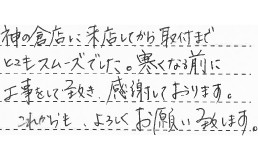 神の倉店に来店してから取付まで
とてもスムーズでした。寒くなる前に
工事をして致き、感謝しております。
これからも、よろしくお願い致します。